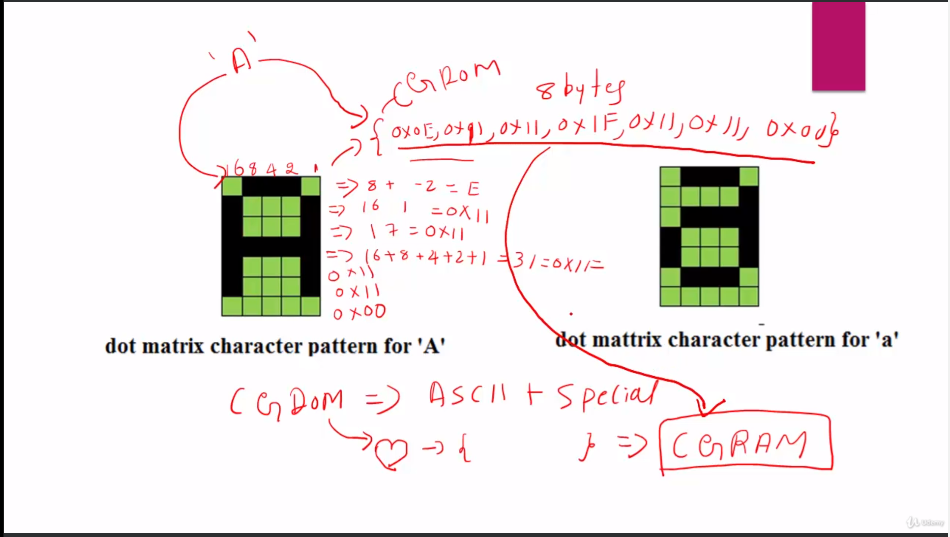 'A'
CGROM
8 bytes
{0x0E, 0x11, 0x11, 0x1F, 0x11, 0x11, 0x00}
16 8 4 2 1
=> 8 + -2 = E
=> 16 1 = 0x11
=> 17 = 0x11
=> 16+8+4+2+1 = 31 = 0x1F
0x11
0x11
0x00
dot matrix character pattern for 'A'
dot mattrix character pattern for 'a'
CGROM => ASCII + Special
→ ♡ → { } => CGRAM
Udemy